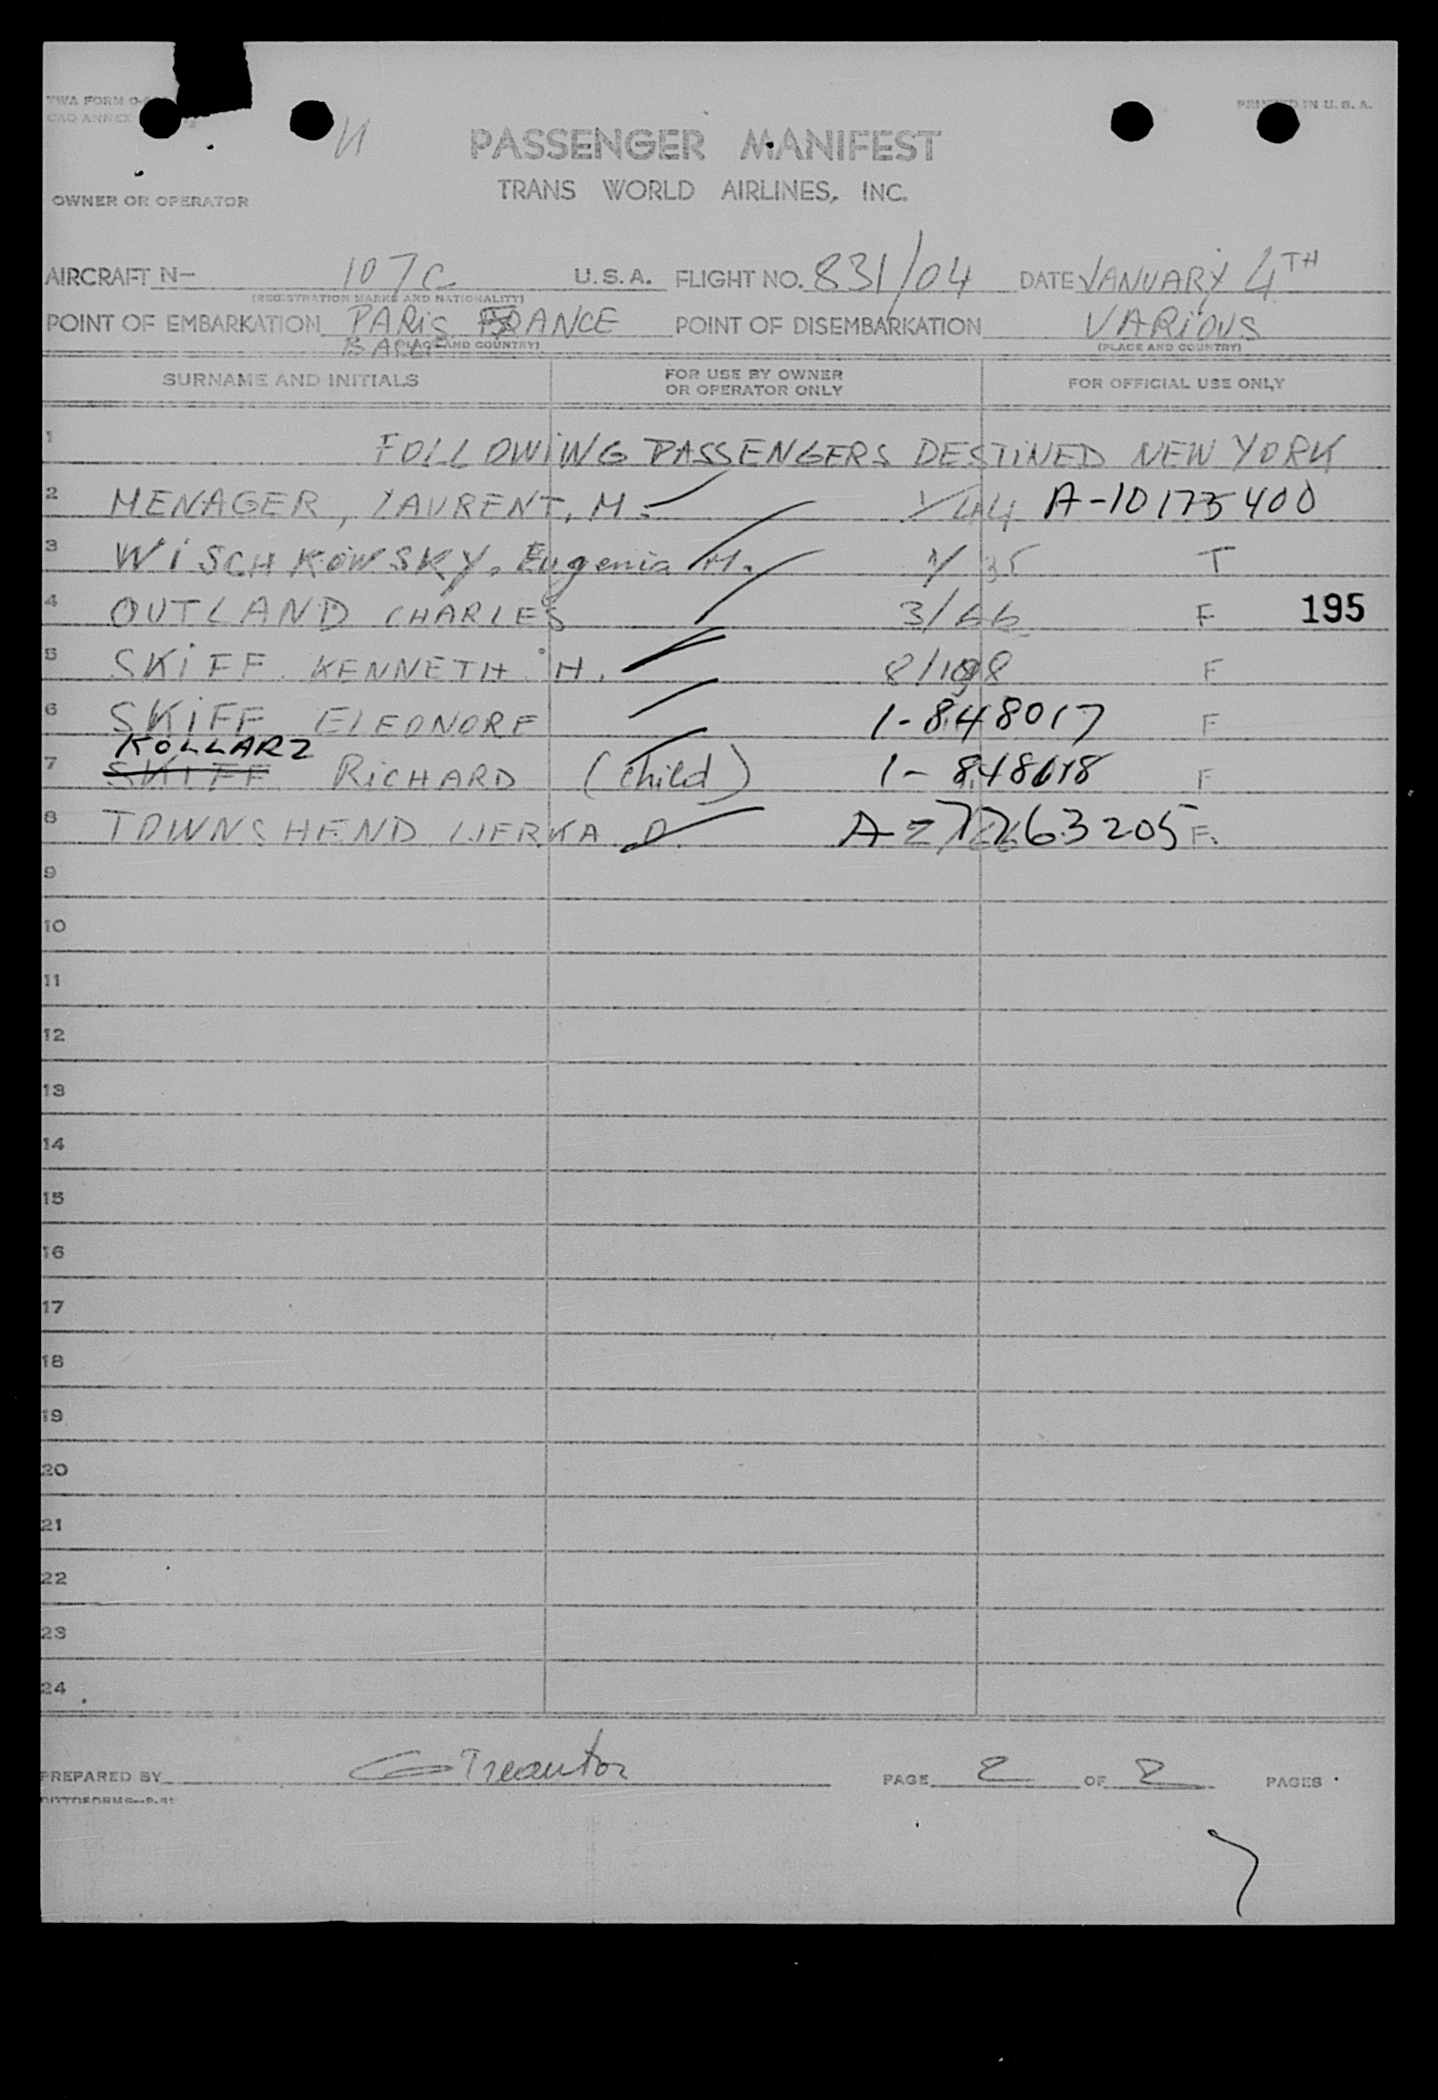 TWA FORM
PRINTED IN U. S. A.
PASSENGER MANIFEST
TRANS WORLD AIRLINES, INC.
OWNER OR OPERATOR
AIRCRAFT N- 107C U.S.A. FLIGHT NO. 831/04 DATE JANUARY 4TH
(REGISTRATION MARKS AND NATIONALITY)
POINT OF EMBARKATION PARIS FRANCE POINT OF DISEMBARKATION VARIOUS
(PLACE AND COUNTRY) (PLACE AND COUNTRY)
SURNAME AND INITIALS FOR USE BY OWNER OR OPERATOR ONLY FOR OFFICIAL USE ONLY
1 FOLLOWING PASSENGERS DESTINED NEW YORK
2 MENAGER, LAURENT, M. 1/44 A-10175400
3 WISCHKOWSKY, Eugenia M. T
4 OUTLAND CHARLES 3/66 F 195
5 SKIFF KENNETH H. F
6 SKIFF ELEONORE 1-848017 F
KOLLARZ
7 SKIFF RICHARD (child) 1-848018 F
8 TOWNSHEND LJERKA D. F.
9
10
11
12
13
14
15
16
17
18
19
20
21
22
23
24
PREPARED BY PAGE 2 OF 2 PAGES